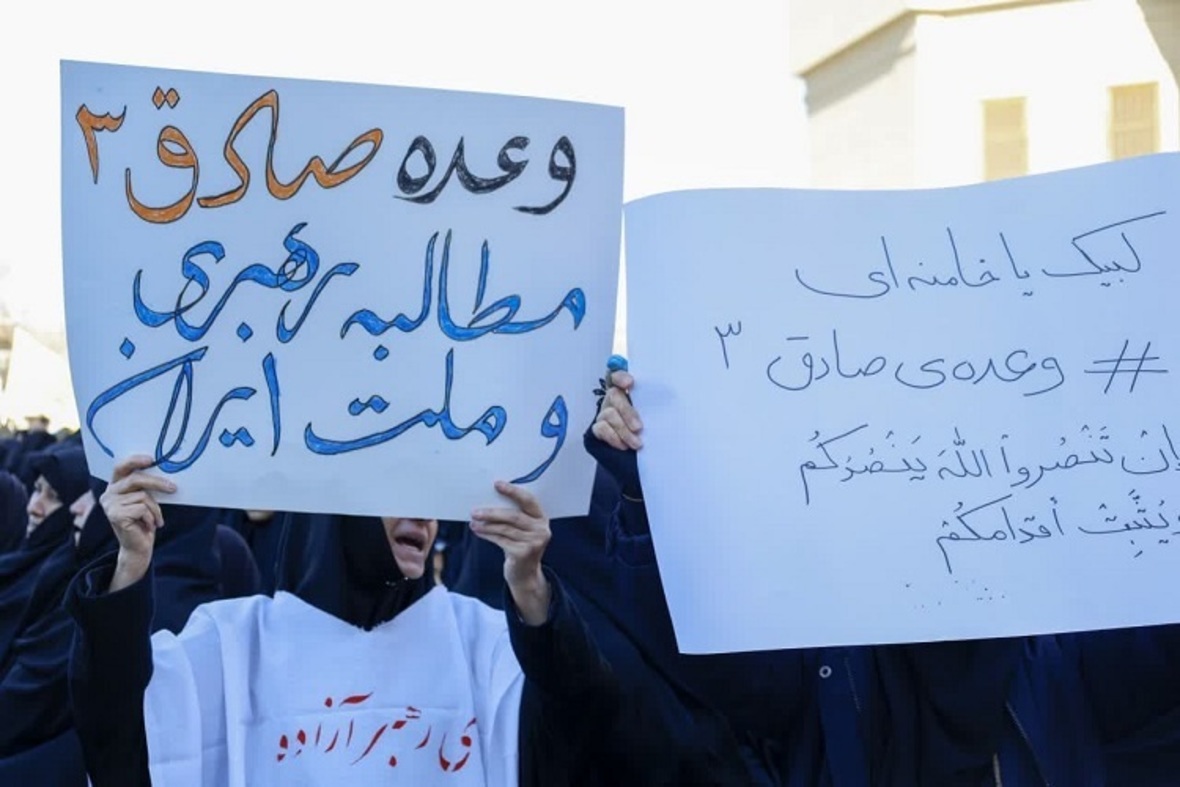 وعده صادق ۳
مطالبه رهبری
و ملت ایران
لبیک یا خامنه ای
# وعده ی صادق ۳
إن تَنْصُرواْ اللّهَ يَنْصُرْكُمْ
ويُثَّبِتْ أقدامكُمْ
ی رهبر آزاده